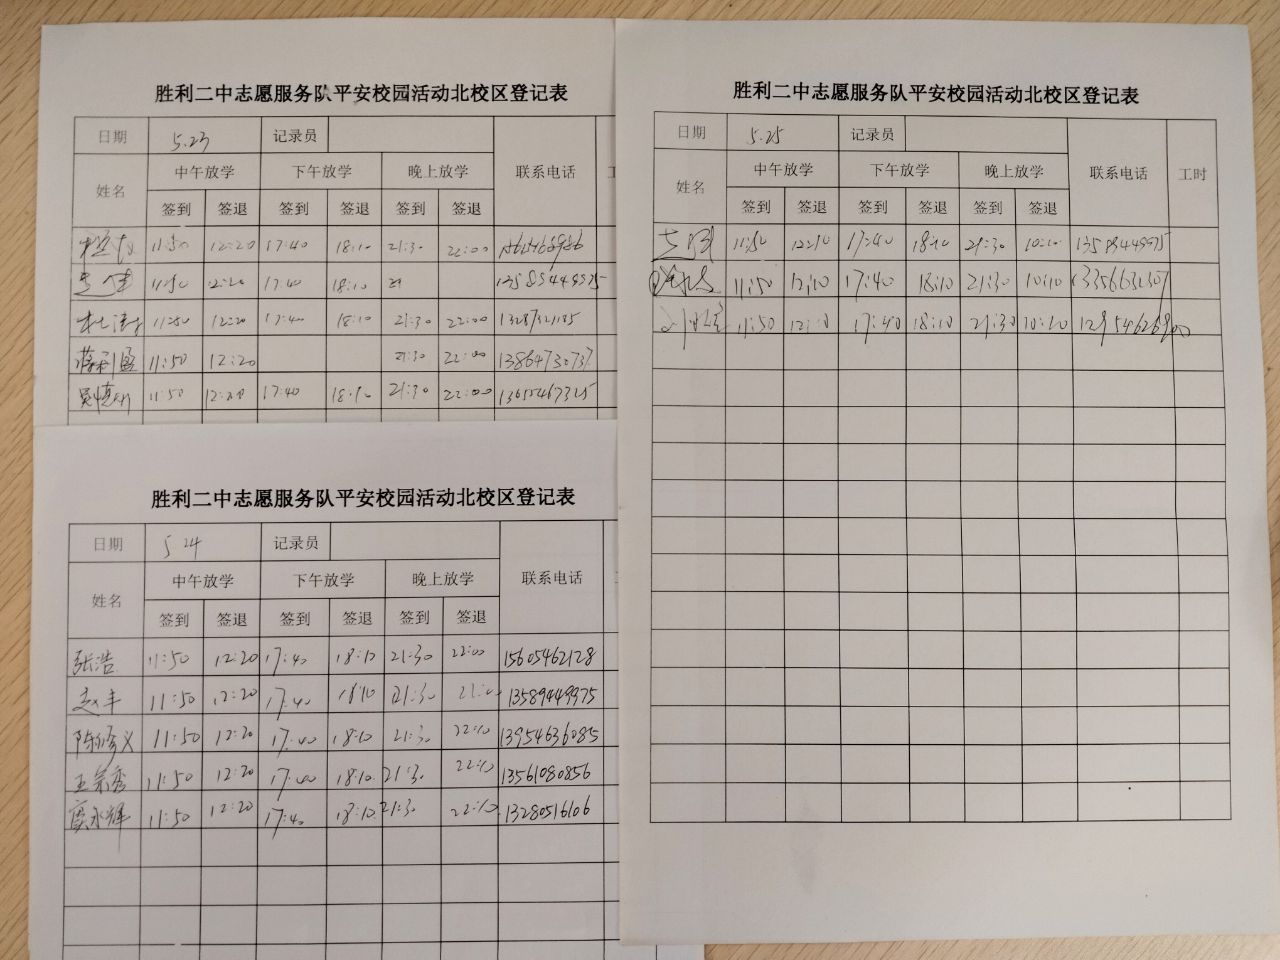 胜利二中志愿服务队平安校园活动北校区登记表
日期 5.23 记录员
姓名 中午放学 下午放学 晚上放学 联系电话
签到 签退 签到 签退 签到 签退
11:50 12:20 17:40 18:10 21:30 22:00
11:50 12:20 17:40 18:10 21 13589449975
11:50 12:20 17:40 18:10 21:30 22:00 13287321185
蒋利国 11:50 12:20 21:30 22:00 13864730737
11:50 12:20 17:40 18:10 21:30 22:00 13655467325
胜利二中志愿服务队平安校园活动北校区登记表
日期 5 24 记录员
姓名 中午放学 下午放学 晚上放学 联系电话
签到 签退 签到 签退 签到 签退
张浩 11:50 12:20 17:40 18:10 21:30 22:00 15605462128
赵丰 11:50 12:20 17:40 18:10 21:30 13589449975
陈修义 11:50 12:20 17:40 18:10 21:30 22:10 13954636085
王宗秀 11:50 12:20 17:40 18:10 21:30 22:10 13561080856
窦永辉 11:50 12:20 17:40 18:10 21:30 22:10 13280516106
胜利二中志愿服务队平安校园活动北校区登记表
日期 5.25 记录员
姓名 中午放学 下午放学 晚上放学 联系电话 工时
签到 签退 签到 签退 签到 签退
11:50 12:10 17:40 18:10 21:30 10:10 13589449975
11:50 12:10 17:40 18:10 21:30 10:10 13356632307
11:50 12:10 17:40 18:10 21:30 10:10